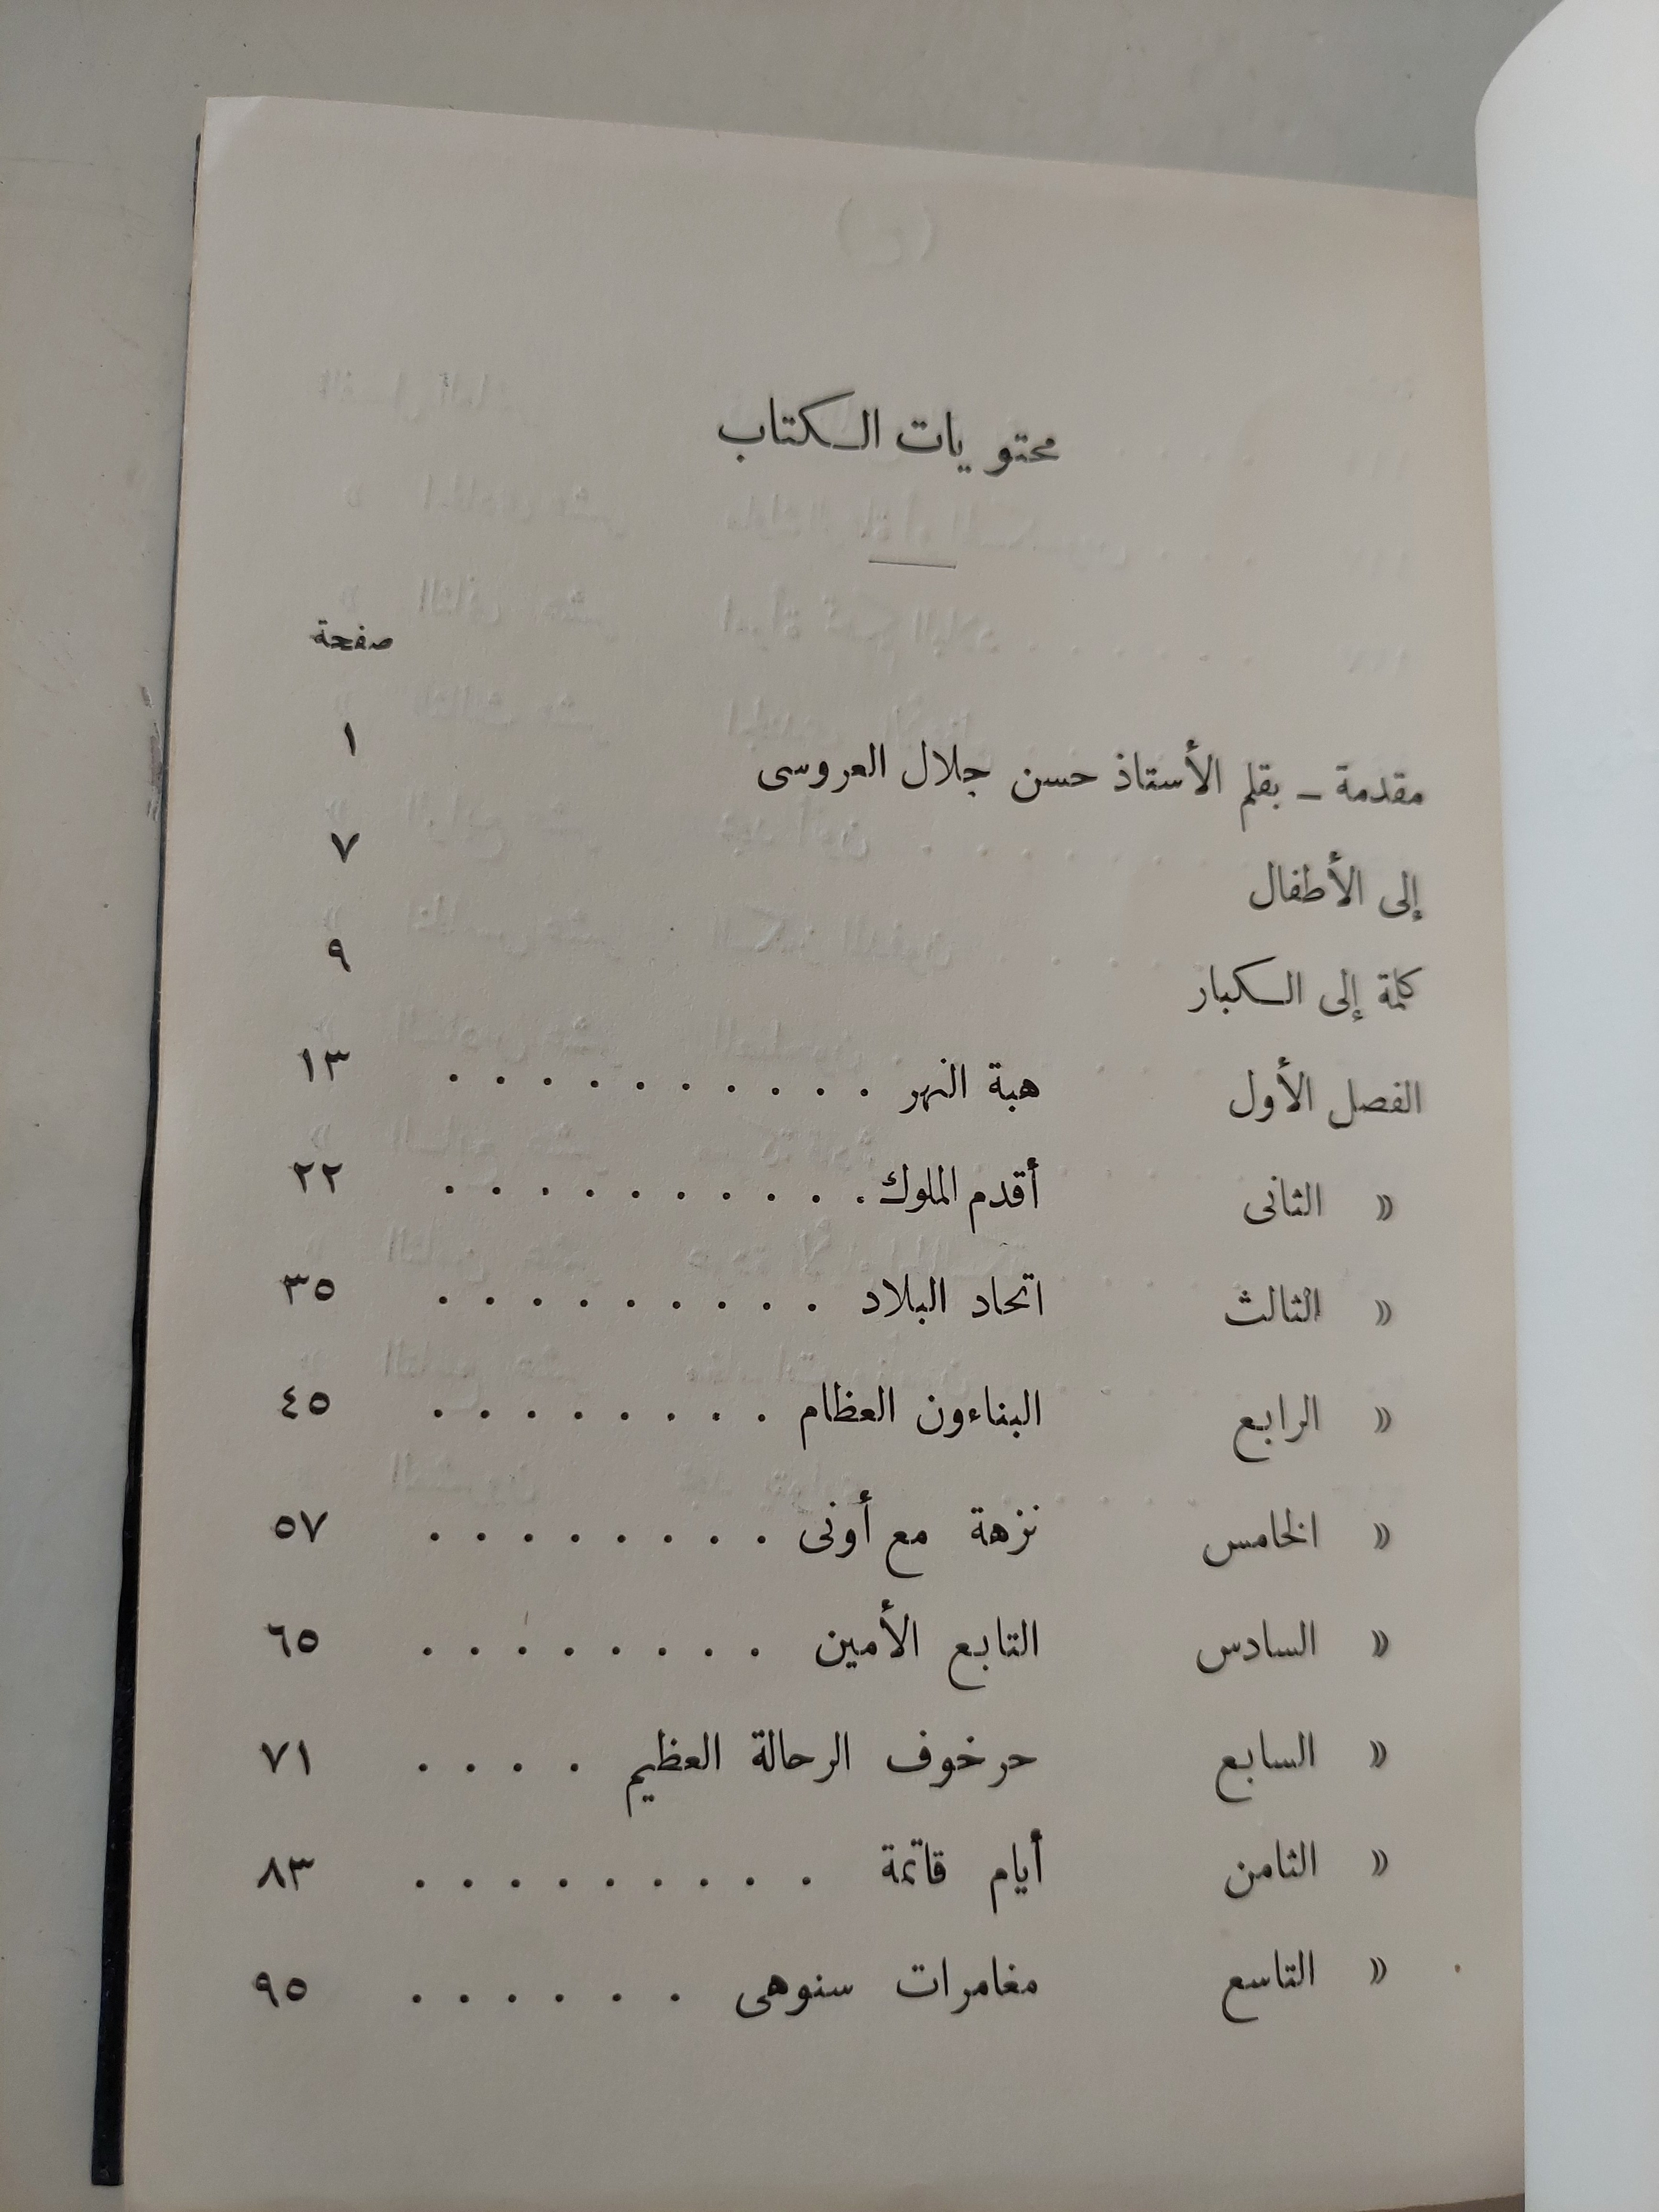 محتويات الكتاب
صفحة
مقدمة – بقلم الأستاذ حسن جلال العروسى ١
إلى الأطفال ٧
كلمة إلى الكبار ٩
الفصل الأول هبة النهر . . . . . . . . . . ١٣
« الثانى أقدم الملوك . . . . . . . . . . ٢٢
« الثالث اتحاد البلاد . . . . . . . . . ٣٥
« الرابع البناءون العظام . . . . . . . . ٤٥
« الخامس نزهة مع أونى . . . . . . . . ٥٧
« السادس التابع الأمين . . . . . . . . ٦٥
« السابع حرخوف الرحالة العظيم . . . . ٧١
« الثامن أيام قاتمة . . . . . . . . . ٨٣
« التاسع مغامرات سنوهى . . . . . . ٩٥